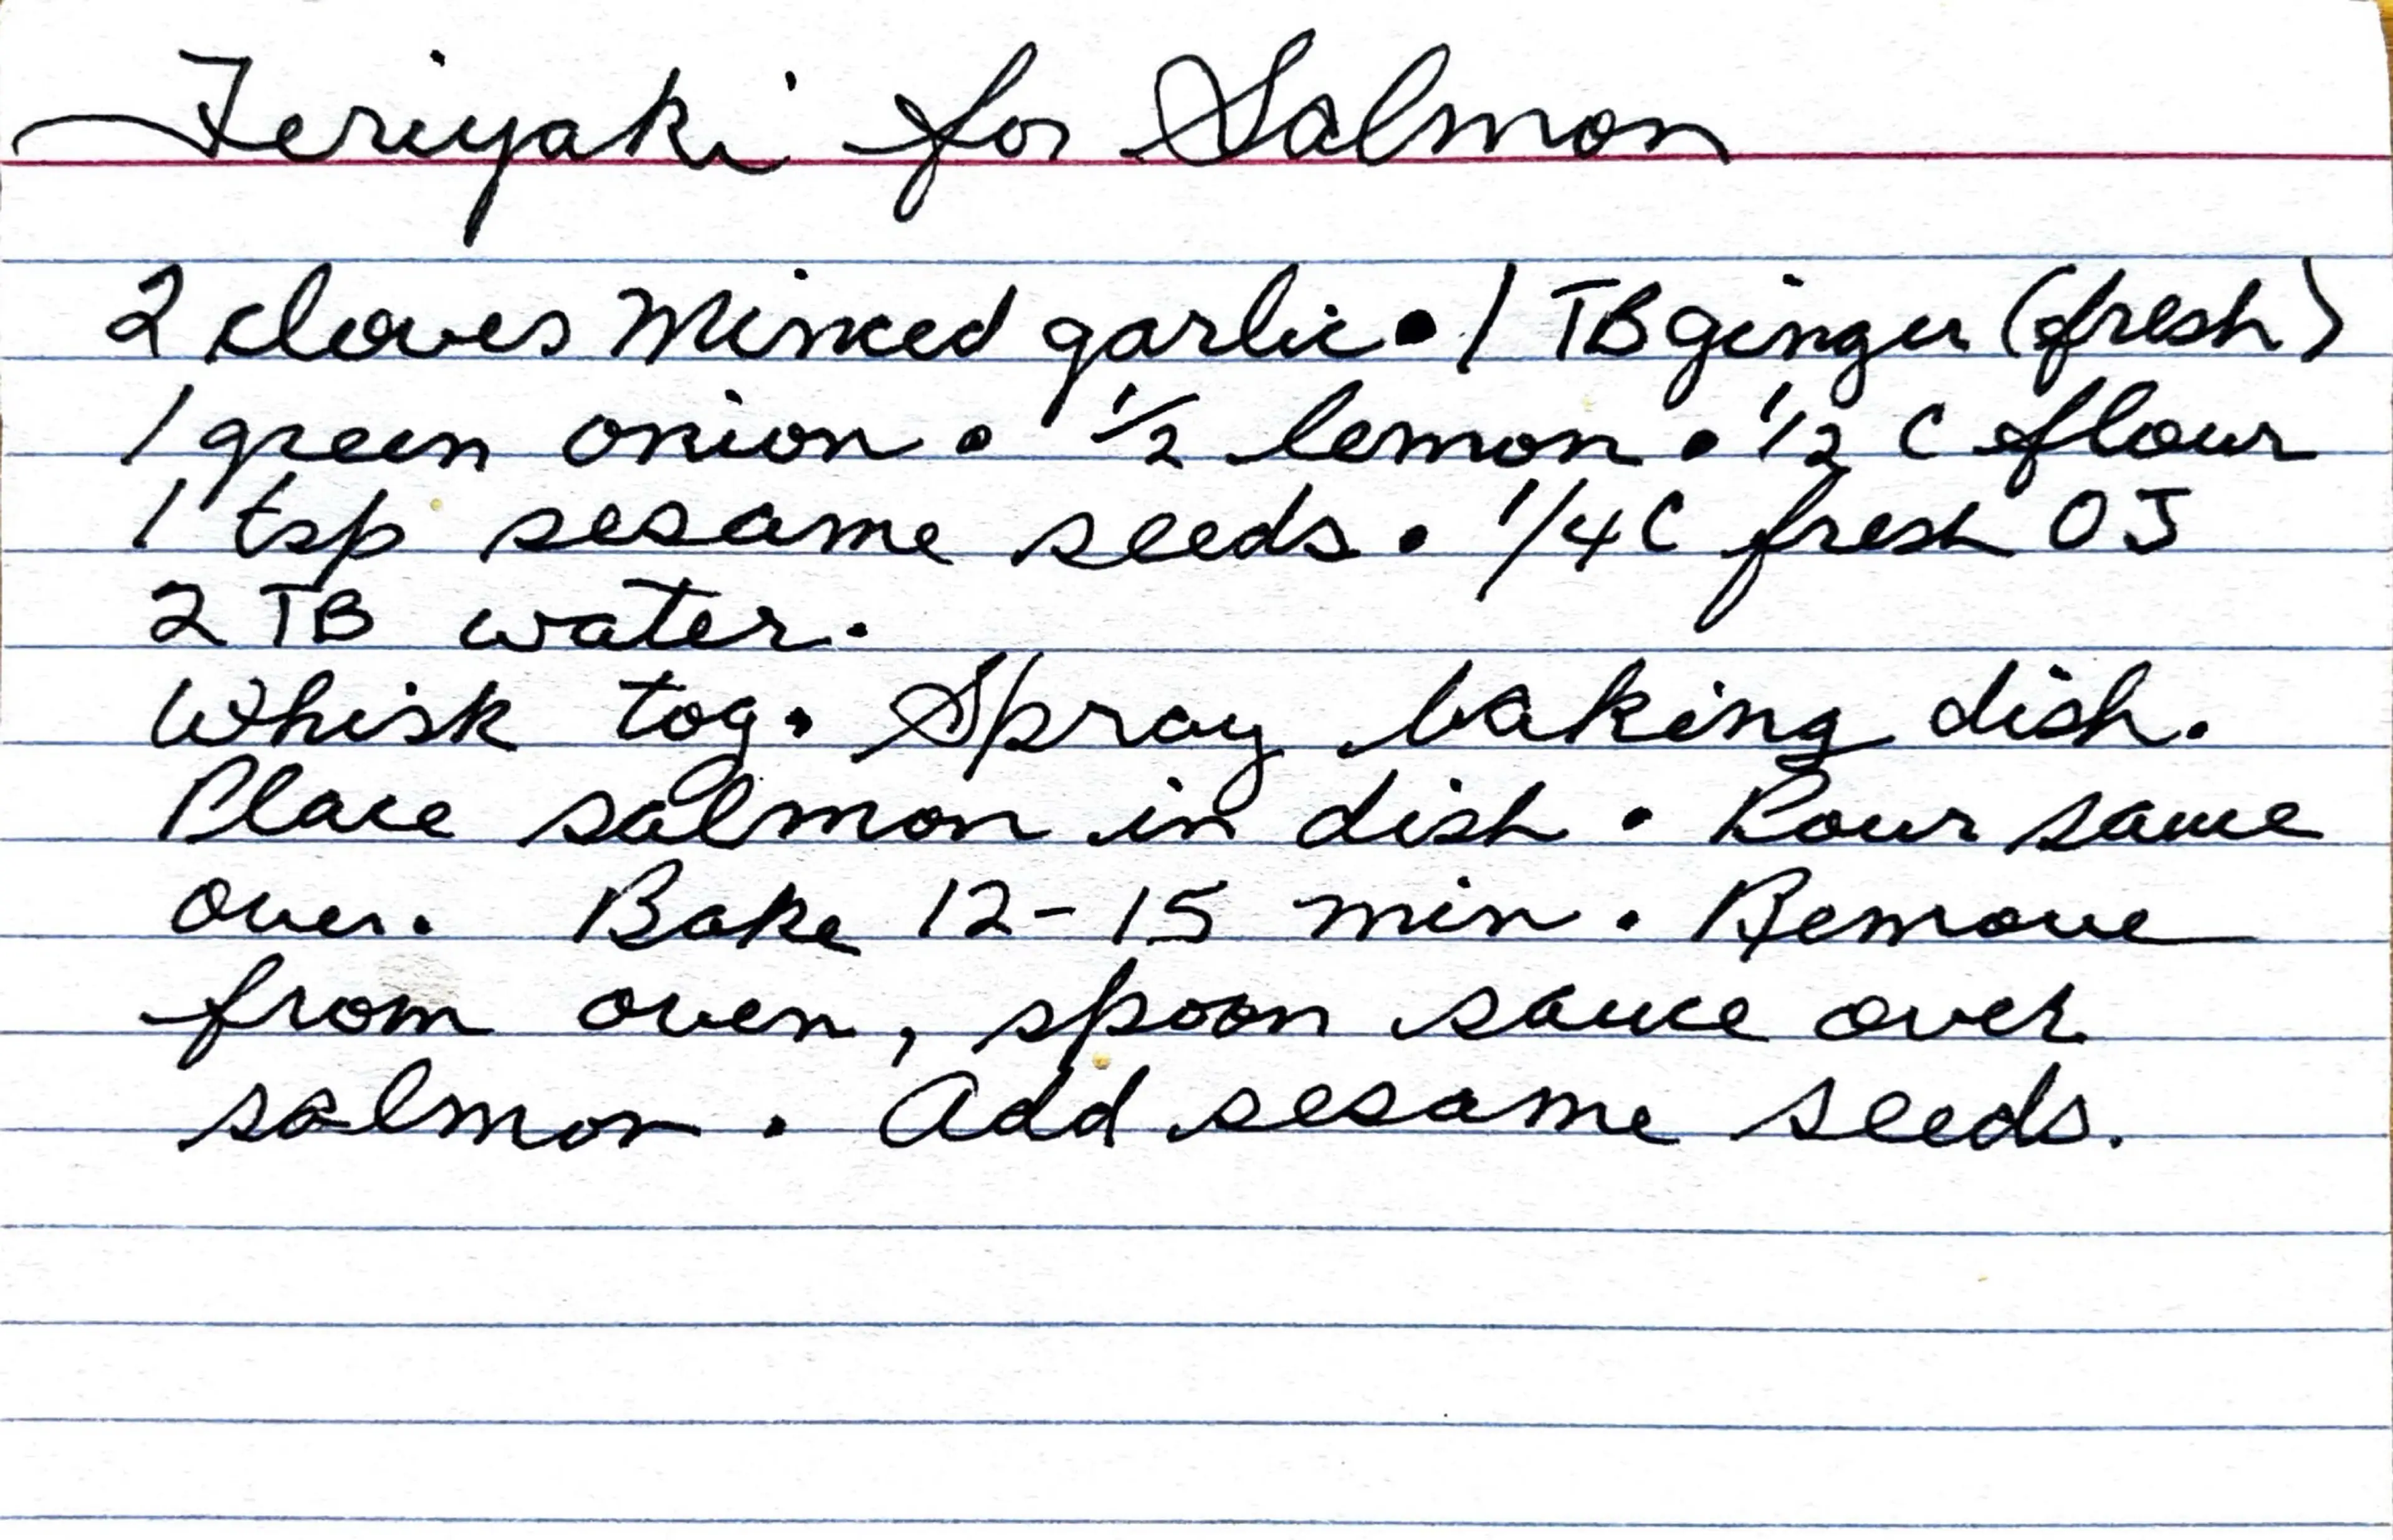 Teriyaki for Salmon
2 cloves Minced garlic • 1 TB ginger (fresh)
1 green onion • 1/2 lemon • 1/2 C flour
1 tsp sesame seeds • 1/4 C fresh OJ
2 TB water.
Whisk tog. Spray baking dish.
Place salmon in dish. Pour sauce
over. Bake 12-15 min. Remove
from oven, spoon sauce over
salmon. Add sesame seeds.